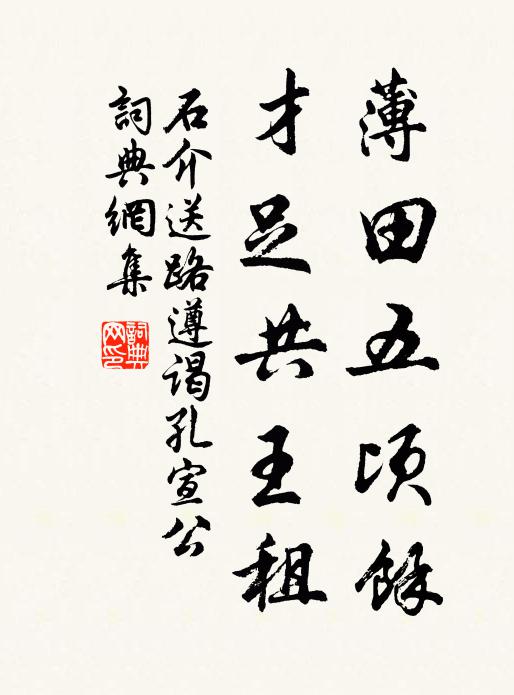 薄田五頃餘
才足共王租
石介送路遵謁孔宣公
詞典網集
詞典網印